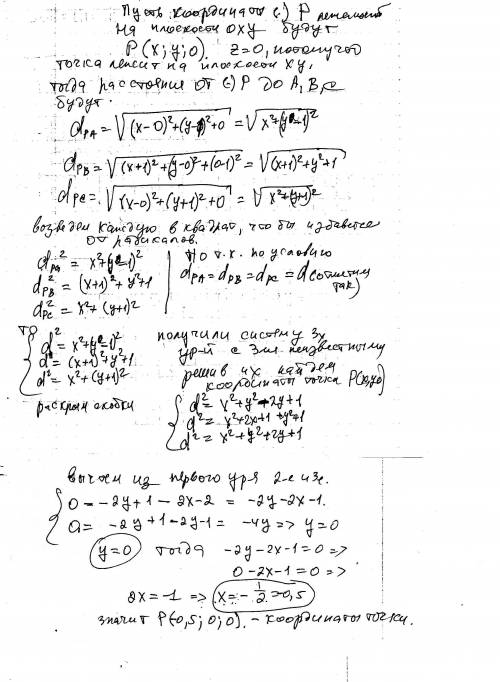 Пусть координаты (·) P лежащей
на плоскости OXY будут
P(x; y; 0). z=0, потому что
точка лежит на плоскости XY,
тогда расстояния от (·) P до A, B, C
будут:
d_PA = √((x-0)²+(y-1)²+0) = √(x²+(y-1)²)
d_PB = √((x+1)²+(y-0)²+(0-1)²) = √((x+1)²+y²+1)
d_PC = √((x-0)²+(y+1)²+0) = √(x²+(y+1)²)
возведем каждую в квадрат, что бы избавиться
от радикалов.
d_PA² = x²+(y-1)²
d_PB² = (x+1)²+y²+1
d_PC² = x²+(y+1)²
Но т.к. по условию
d_PA = d_PB = d_PC = d (отметим
так)
то
d² = x²+(y-1)²
d² = (x+1)²+y²+1
d² = x²+(y+1)²
раскроем скобки
получили систему 3х
ур-й с 3мя неизвестными
решив их найдем
координаты точки P(x,y,0)
d² = x²+y²-2y+1
d² = x²+2x+1+y²+1
d² = x²+y²+2y+1
вычтем из первого ур-я 2-е и 3е.
0 = -2y+1-2x-2 = -2y-2x-1.
0 = -2y+1-2y-1 = -4y => y=0
y=0 тогда -2y-2x-1=0 =>
0-2x-1=0 =>
2x=-1 => x=-1/2=0,5
значит P(-0,5; 0; 0) - координаты точки.